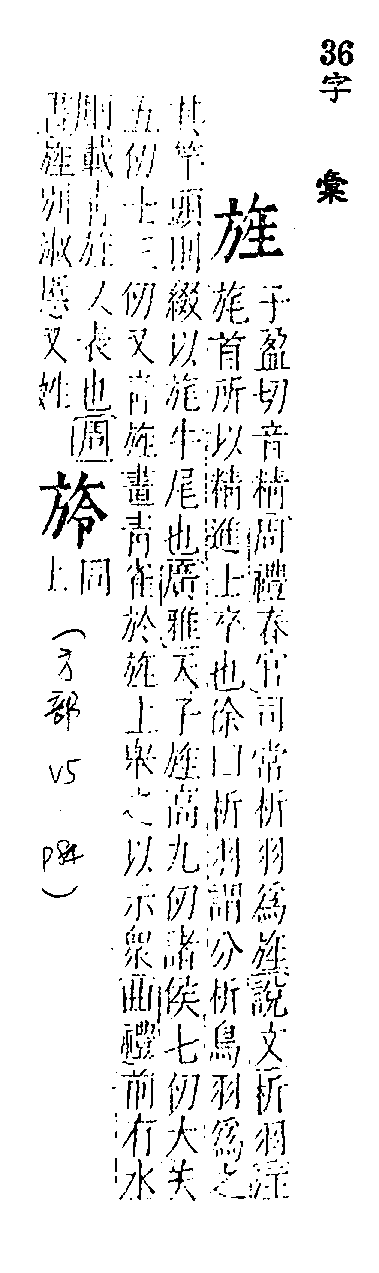 36字彙
旌
子盈切音精周禮春官司常析羽爲旌說文析羽注
旄首所以精進士卒也徐曰析羽謂分析鳥羽爲之
其竿頭則綴以旄牛尾也廣雅天子旌高九仞諸侯七仞大夫
五仞士三仞又靑旌畫靑雀於旌上舉之以示衆曲禮前有水
則載靑旌又長也周
書旌別淑慝又姓
㫋
同
上
(方部 V5 P84)